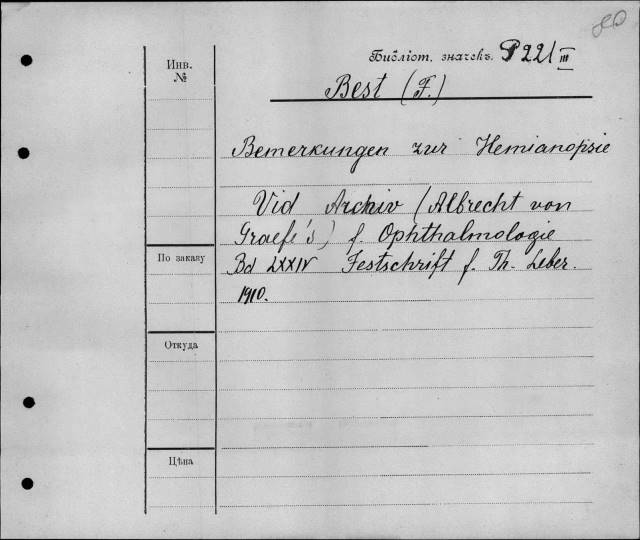 Библіот. значекъ. P 221/III
Инв.
№
Best (F.)
Bemerkungen zur Hemianopsie
Vid Archiv (Albrecht von
Graefe's) f. Ophthalmologie
По заказу
Bd LXXIV Festschrift f. Th. Leber.
1910.
Откуда
Цѣна